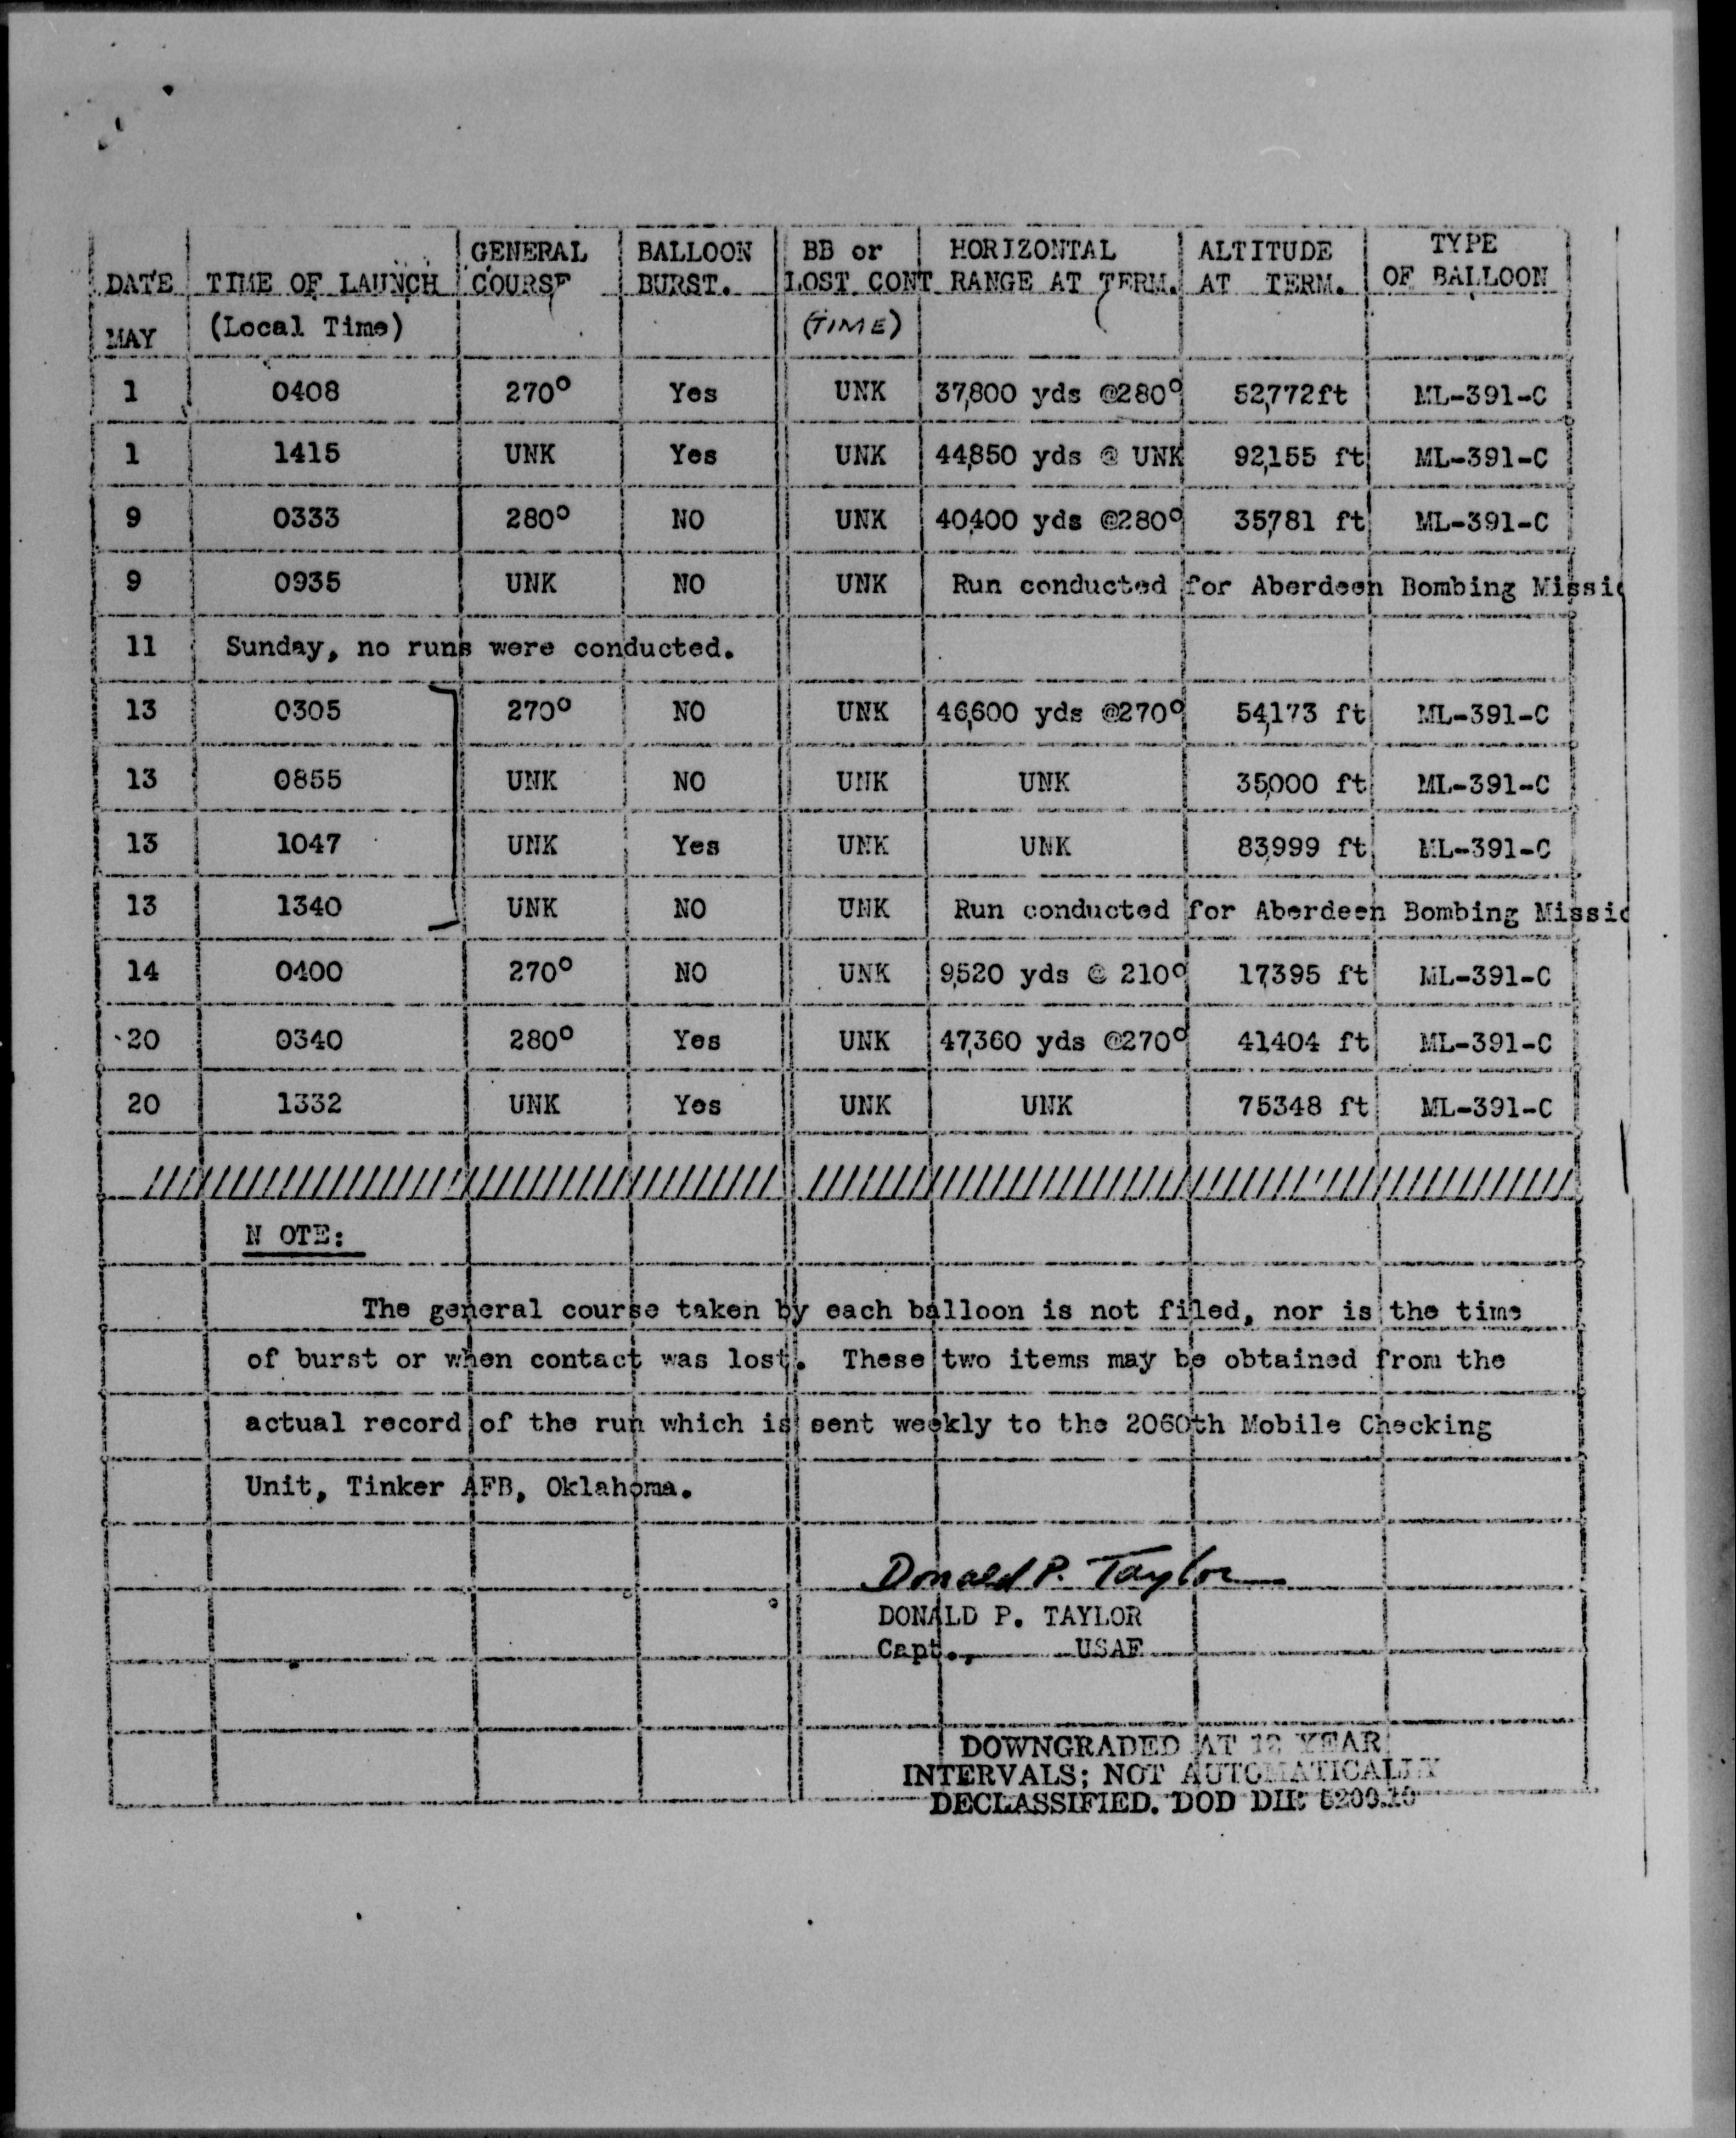 DATE TIME OF LAUNCH GENERAL COURSE BALLOON BURST. BB or LOST CONT HORIZONTAL RANGE AT TERM. ALTITUDE AT TERM. TYPE OF BALLOON
MAY (Local Time) (TIME)
1 0408 270° Yes UNK 37,800 yds @280° 52,772ft ML-391-C
1 1415 UNK Yes UNK 44,850 yds @ UNK 92,155 ft ML-391-C
9 0333 280° NO UNK 40,400 yds @280° 35,781 ft ML-391-C
9 0935 UNK NO UNK Run conducted for Aberdeen Bombing Missio
11 Sunday, no runs were conducted.
13 0305 270° NO UNK 46,600 yds @270° 54,173 ft ML-391-C
13 0855 UNK NO UNK UNK 35,000 ft ML-391-C
13 1047 UNK Yes UNK UNK 83,999 ft ML-391-C
13 1340 UNK NO UNK Run conducted for Aberdeen Bombing Missio
14 0400 270° NO UNK 9,520 yds @ 210° 17,395 ft ML-391-C
20 0340 280° Yes UNK 47,360 yds @270° 41,404 ft ML-391-C
20 1332 UNK Yes UNK UNK 75348 ft ML-391-C
N OTE:
The general course taken by each balloon is not filed, nor is the time
of burst or when contact was lost. These two items may be obtained from the
actual record of the run which is sent weekly to the 2060th Mobile Checking
Unit, Tinker AFB, Oklahoma.
Donald P. Taylor
DONALD P. TAYLOR
Capt., USAF
DOWNGRADED AT 12 YEAR
INTERVALS; NOT AUTOMATICALLY
DECLASSIFIED. DOD DIR 5200.10